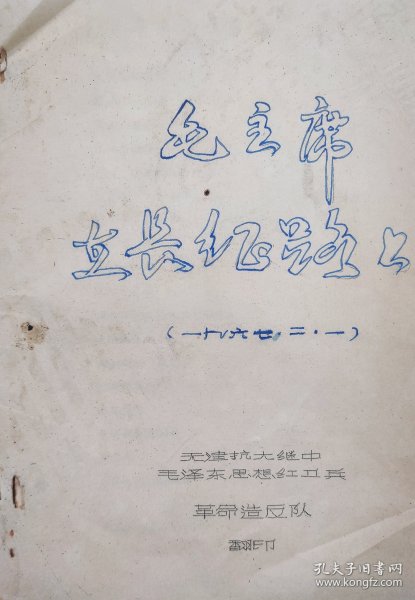 毛主席
在长征路上
(一九六七·二·一)
天津抗大继中
毛泽东思想红卫兵
革命造反队
翻印
孔夫子旧书网
www.kongfz.com